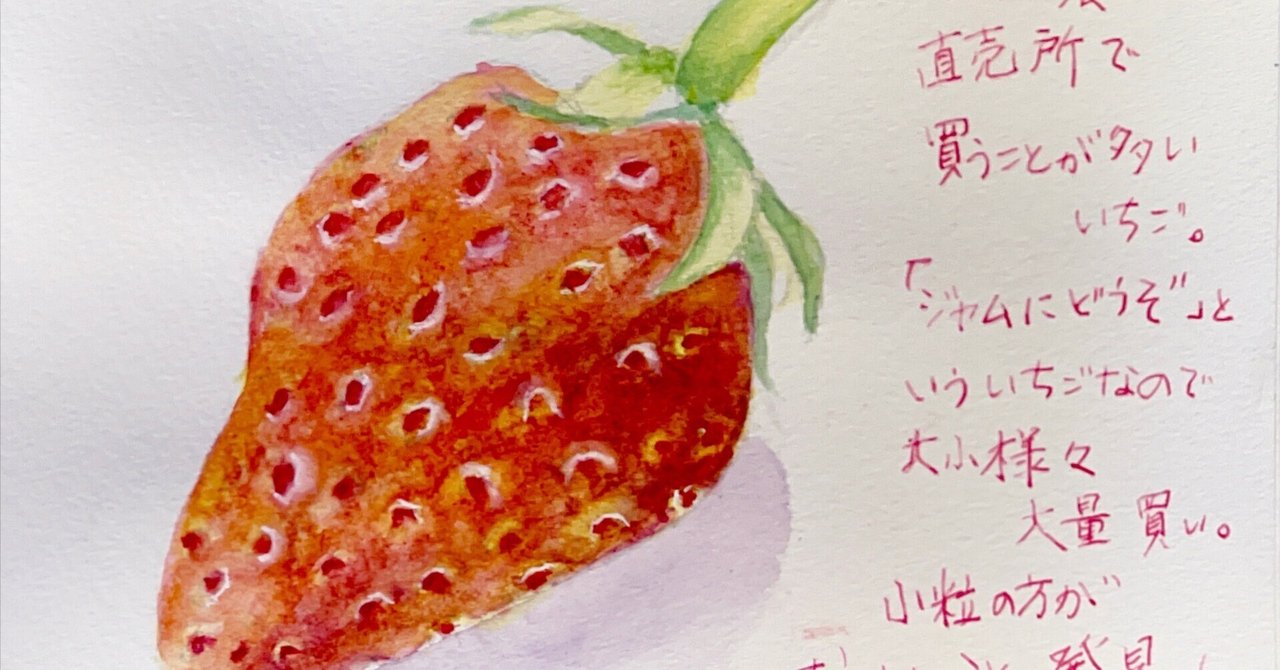 直売所で
買うことが多い
いちご。
「ジャムにどうぞ」と
いういちごなので
大小様々
大量買い。
小粒の方が
発見